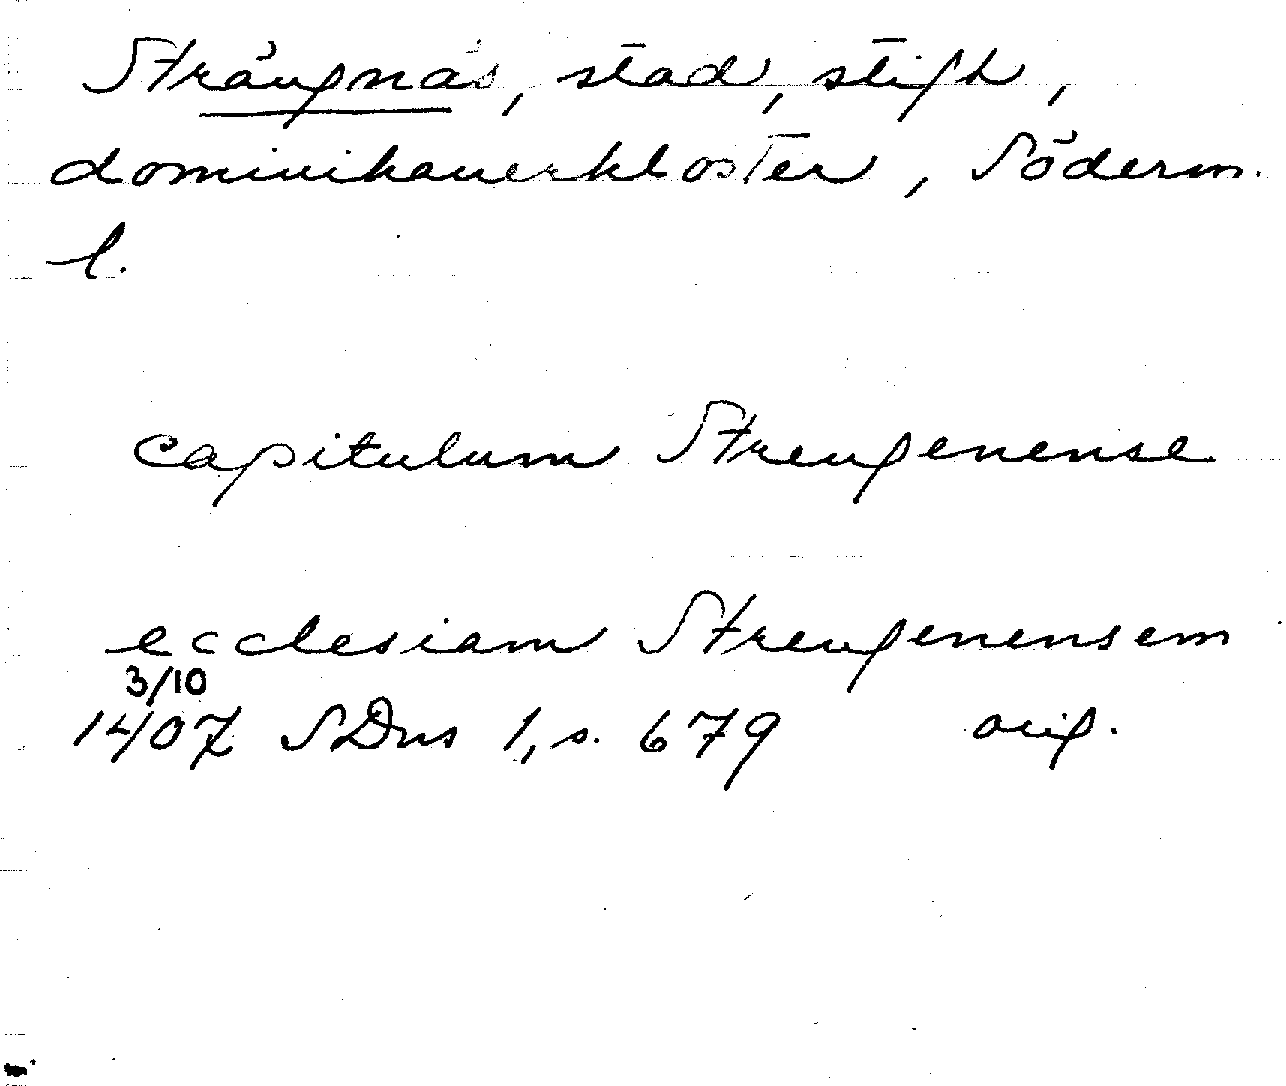 Strängnäs, stad, stift,
dominikanerkloster, Söderm.
l.
capitulum Strengenense
ecclesiam Strengenensem
3/10
1407 SDns 1, s. 679 orig.